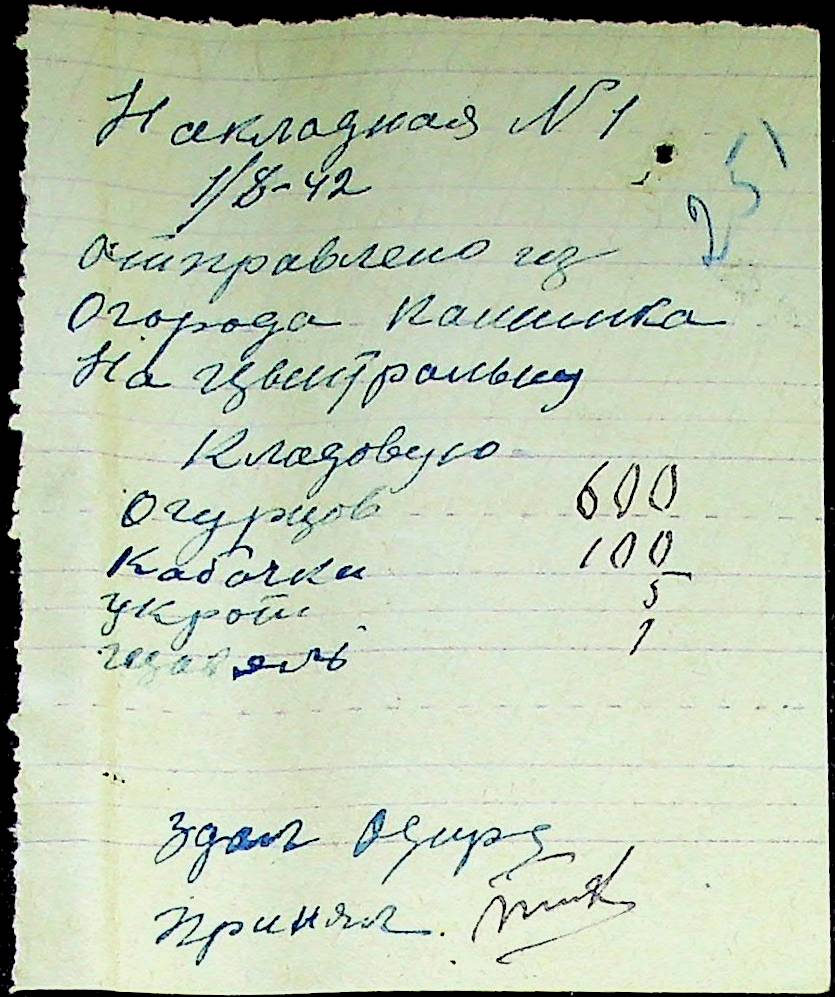 Накладная N 1
1/8-42
25
отправлено из
Огорода
На цвитральну
Кладовую
Огурцов 600
Кабачки 100
укроп 5
щавель 1
Здал
Принял